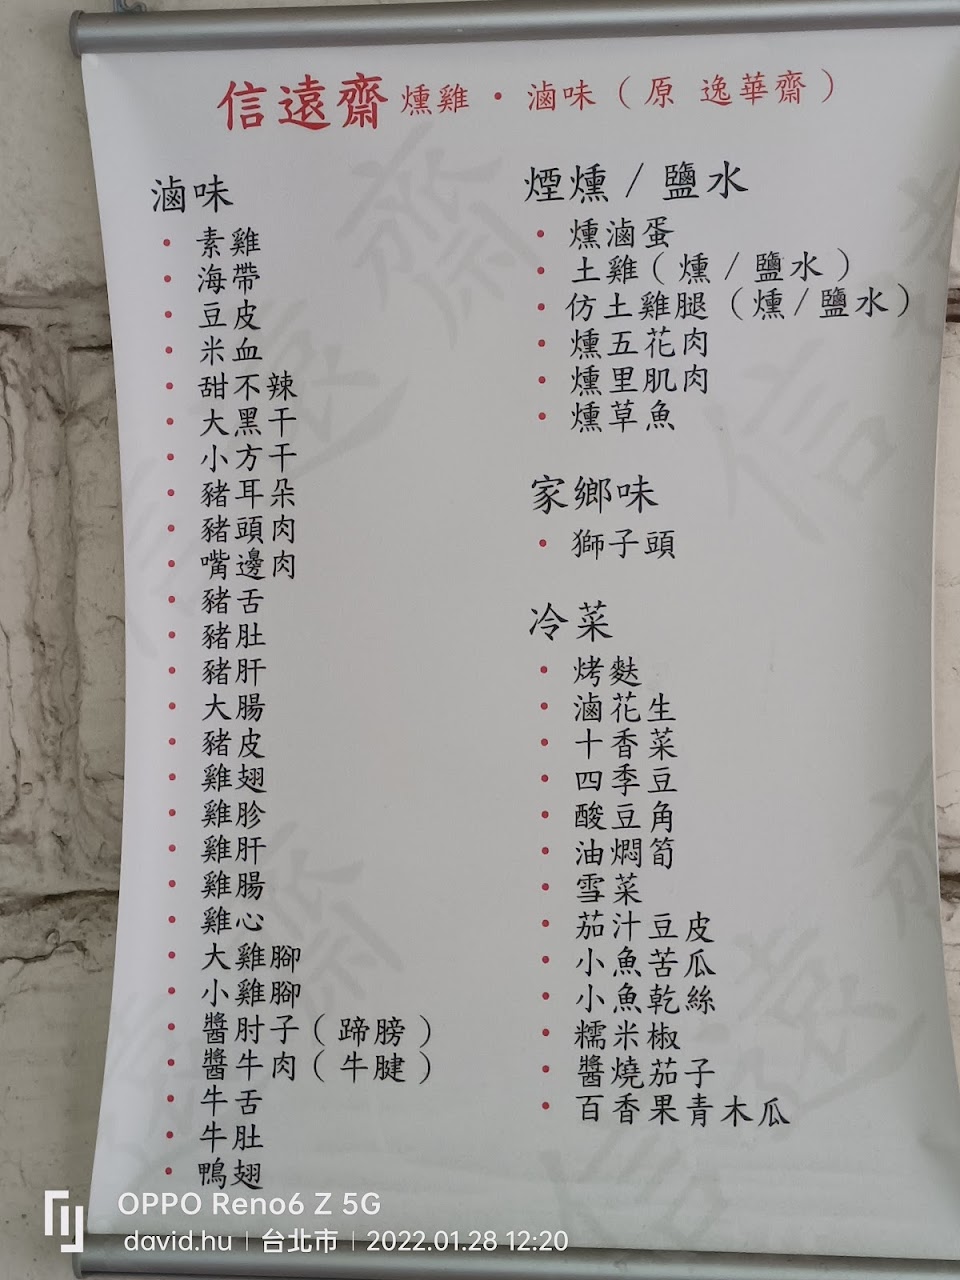 信遠齋 燻雞・滷味（原 逸華齋）
滷味
・素雞
・海帶
・豆皮
・米血
・甜不辣
・大黑干
・小方干
・豬耳朵
・豬頭肉
・嘴邊肉
・豬舌
・豬肚
・豬肝
・大腸
・豬皮
・雞翅
・雞胗
・雞肝
・雞腸
・雞心
・大雞腳
・小雞腳
・醬肘子（蹄膀）
・醬牛肉（牛腱）
・牛舌
・牛肚
・鴨翅
煙燻/鹽水
・燻滷蛋
・土雞（燻/鹽水）
・仿土雞腿（燻/鹽水）
・燻五花肉
・燻里肌肉
・燻草魚
家鄉味
・獅子頭
冷菜
・烤麩
・滷花生
・十香菜
・四季豆
・酸豆角
・油燜筍
・雪菜
・茄汁豆皮
・小魚苦瓜
・小魚乾絲
・糯米椒
・醬燒茄子
・百香果青木瓜
信遠齋
信遠齋
OPPO Reno6 Z 5G
david.hu | 台北市 | 2022.01.28 12:20